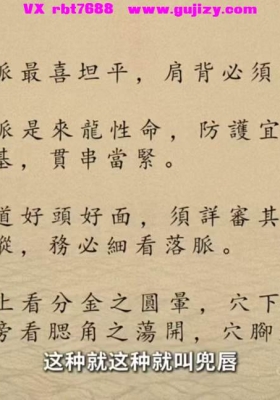 VX rbt7688 www.gujizy.com
脈最喜坦平，肩背必須
脈是來龍性命，防護宜
基，貫串當緊。
道好頭好面，須詳審其
蹤，務必細看落脈。
上看分金之圓暈，穴下
旁看腮角之蕩開，穴腳
这种就这种就叫兜唇